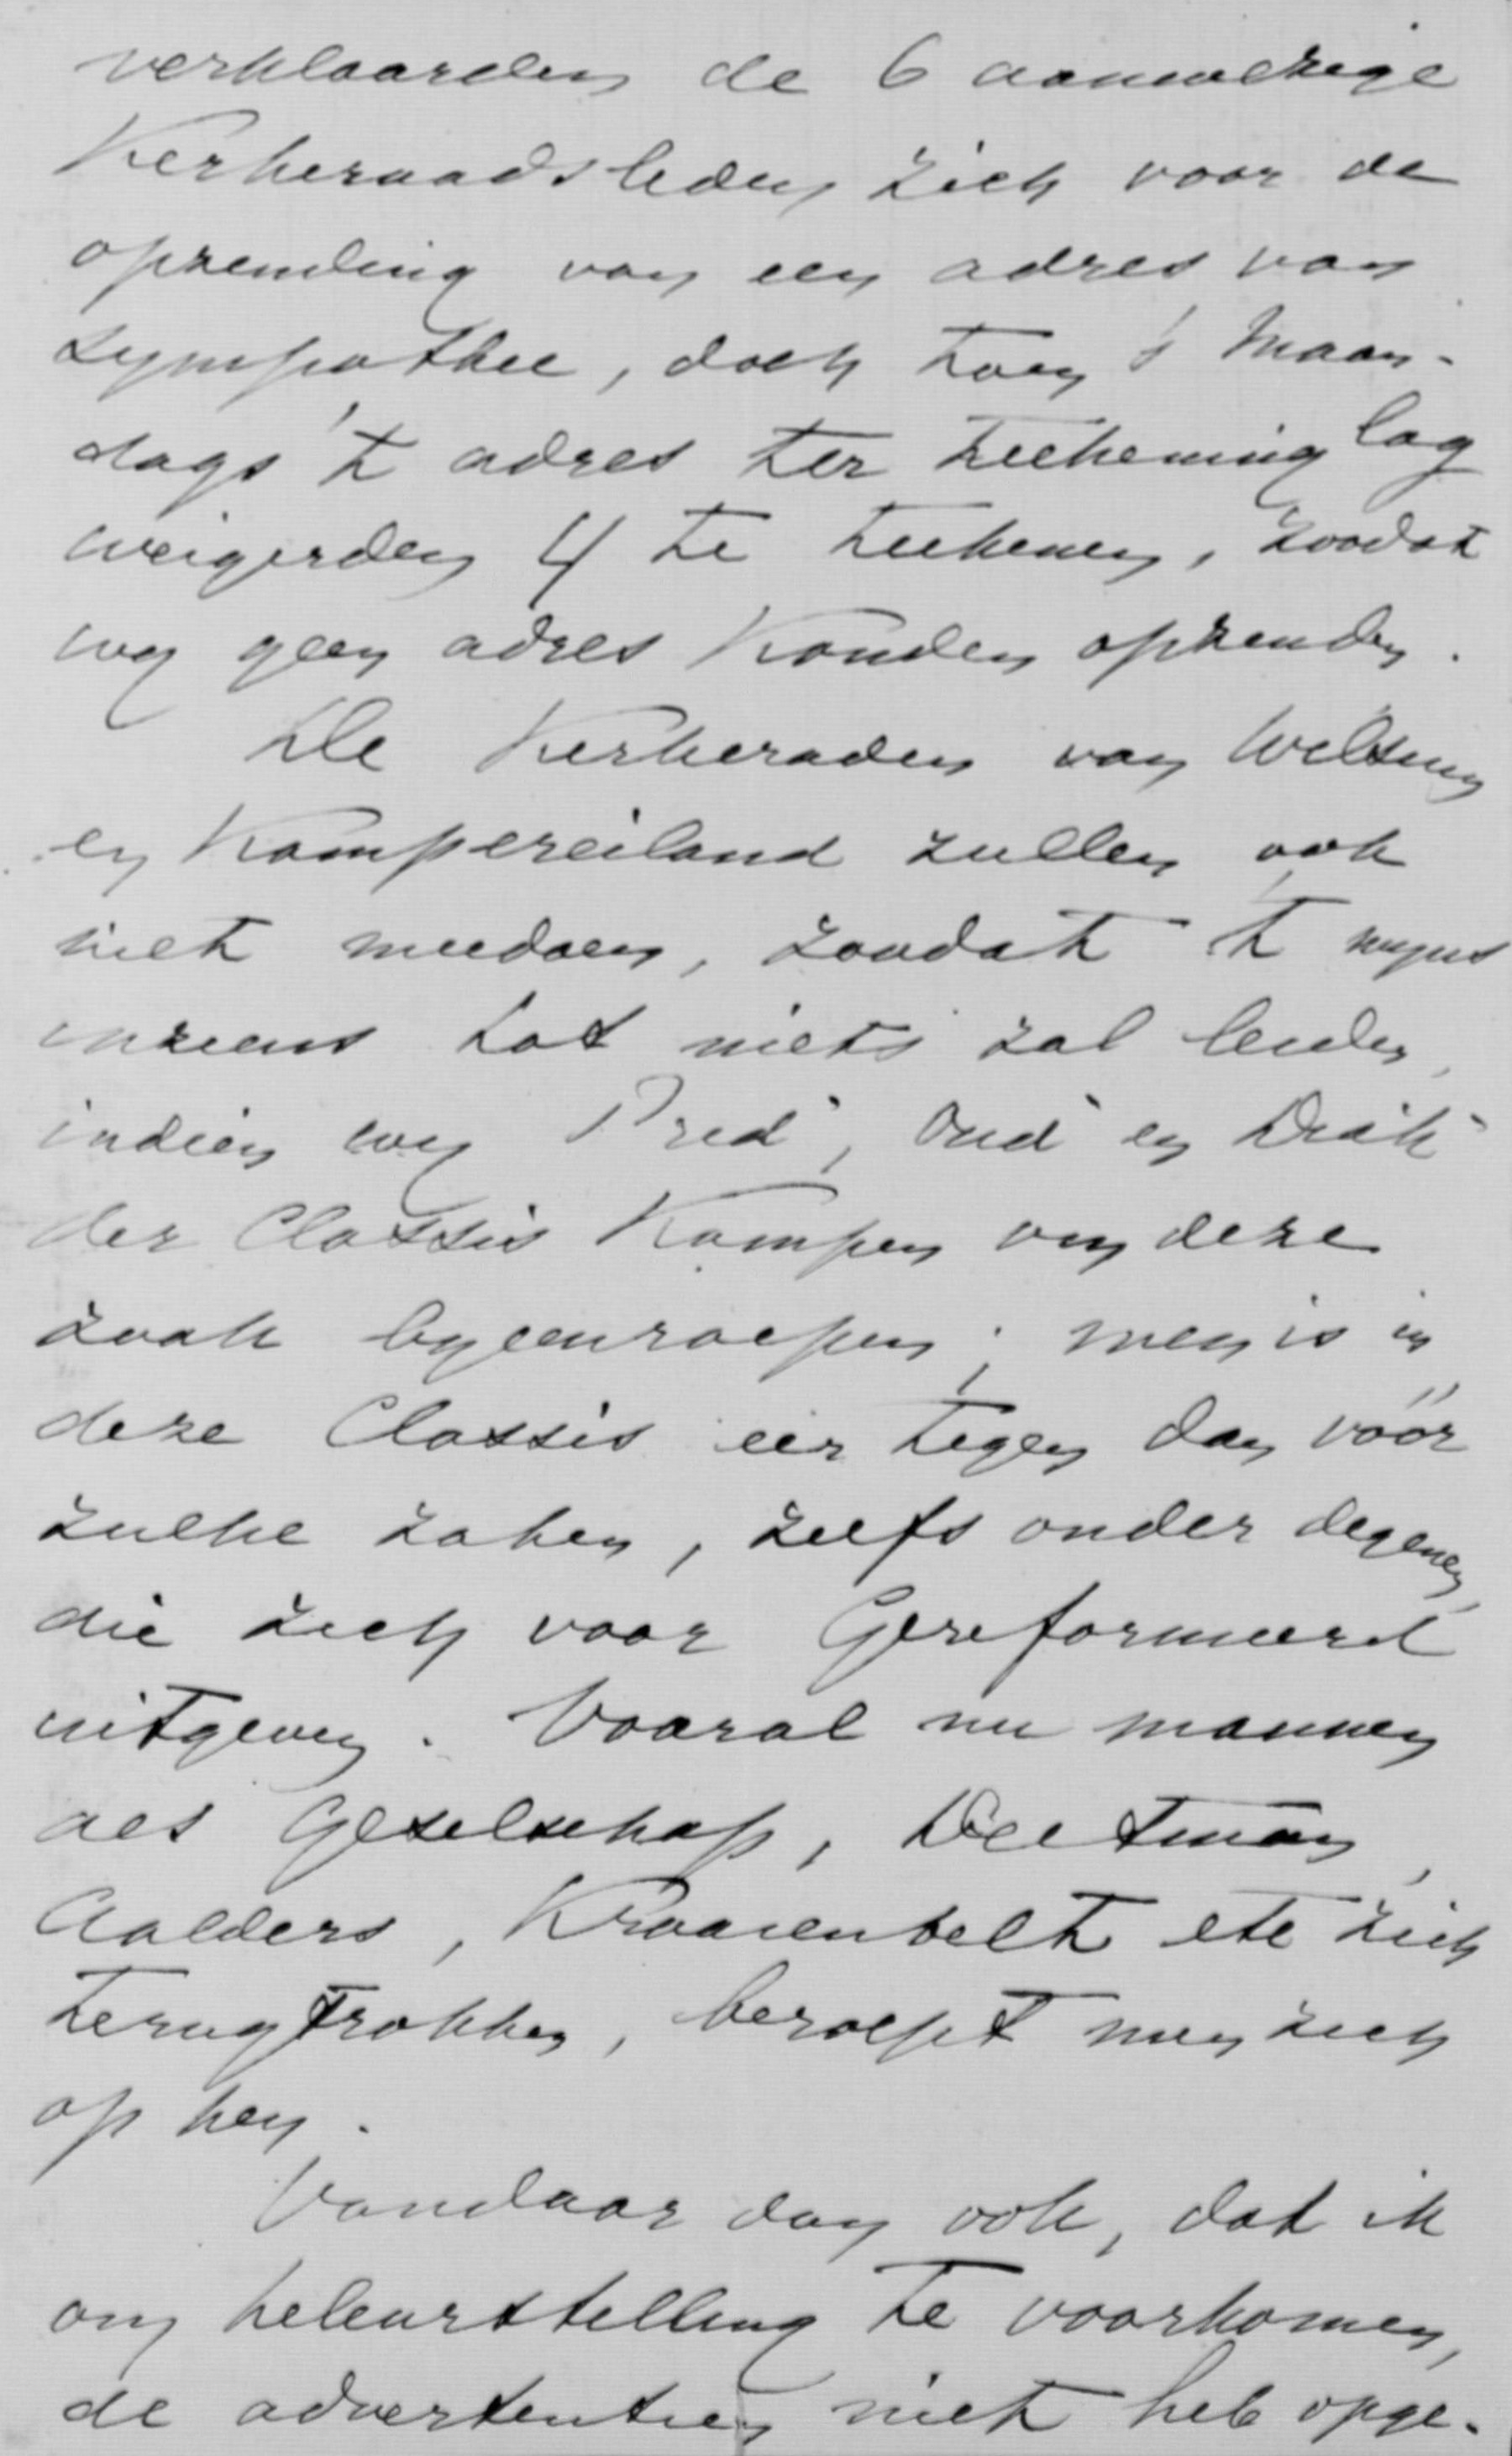 verklaarden de 6 aanwezige
Kerkeraadsleden zich voor de
opzending van een adres van
sympathie, doch toen 's Maan-
dags 't adres ter teekening lag
weigerden 4 te teekenen, zoodat
wij geen adres konden opzenden.
De Kerkeraden van Wilsum
en Kampereiland zullen ook
niet meedoen, zoodat 't mijns
inziens tot niets zal leiden,
indien wij Pred., Oud. en Diak.
der Classis Kampen om deze
zaak bijeenroepen; men is in
deze Classis eer tegen dan vóór
zulke zaken, zelfs onder degenen,
die zich voor Gereformeerd
uitgeven. Vooral nu mannen
als Geselschap, Deetman,
Aalders, Kraaienbelt etc zich
terugtrokken, beroept men zich
op hen.
Vandaar dan ook, dat ik
om teleurstelling te voorkomen,
de advertentien niet heb opge-